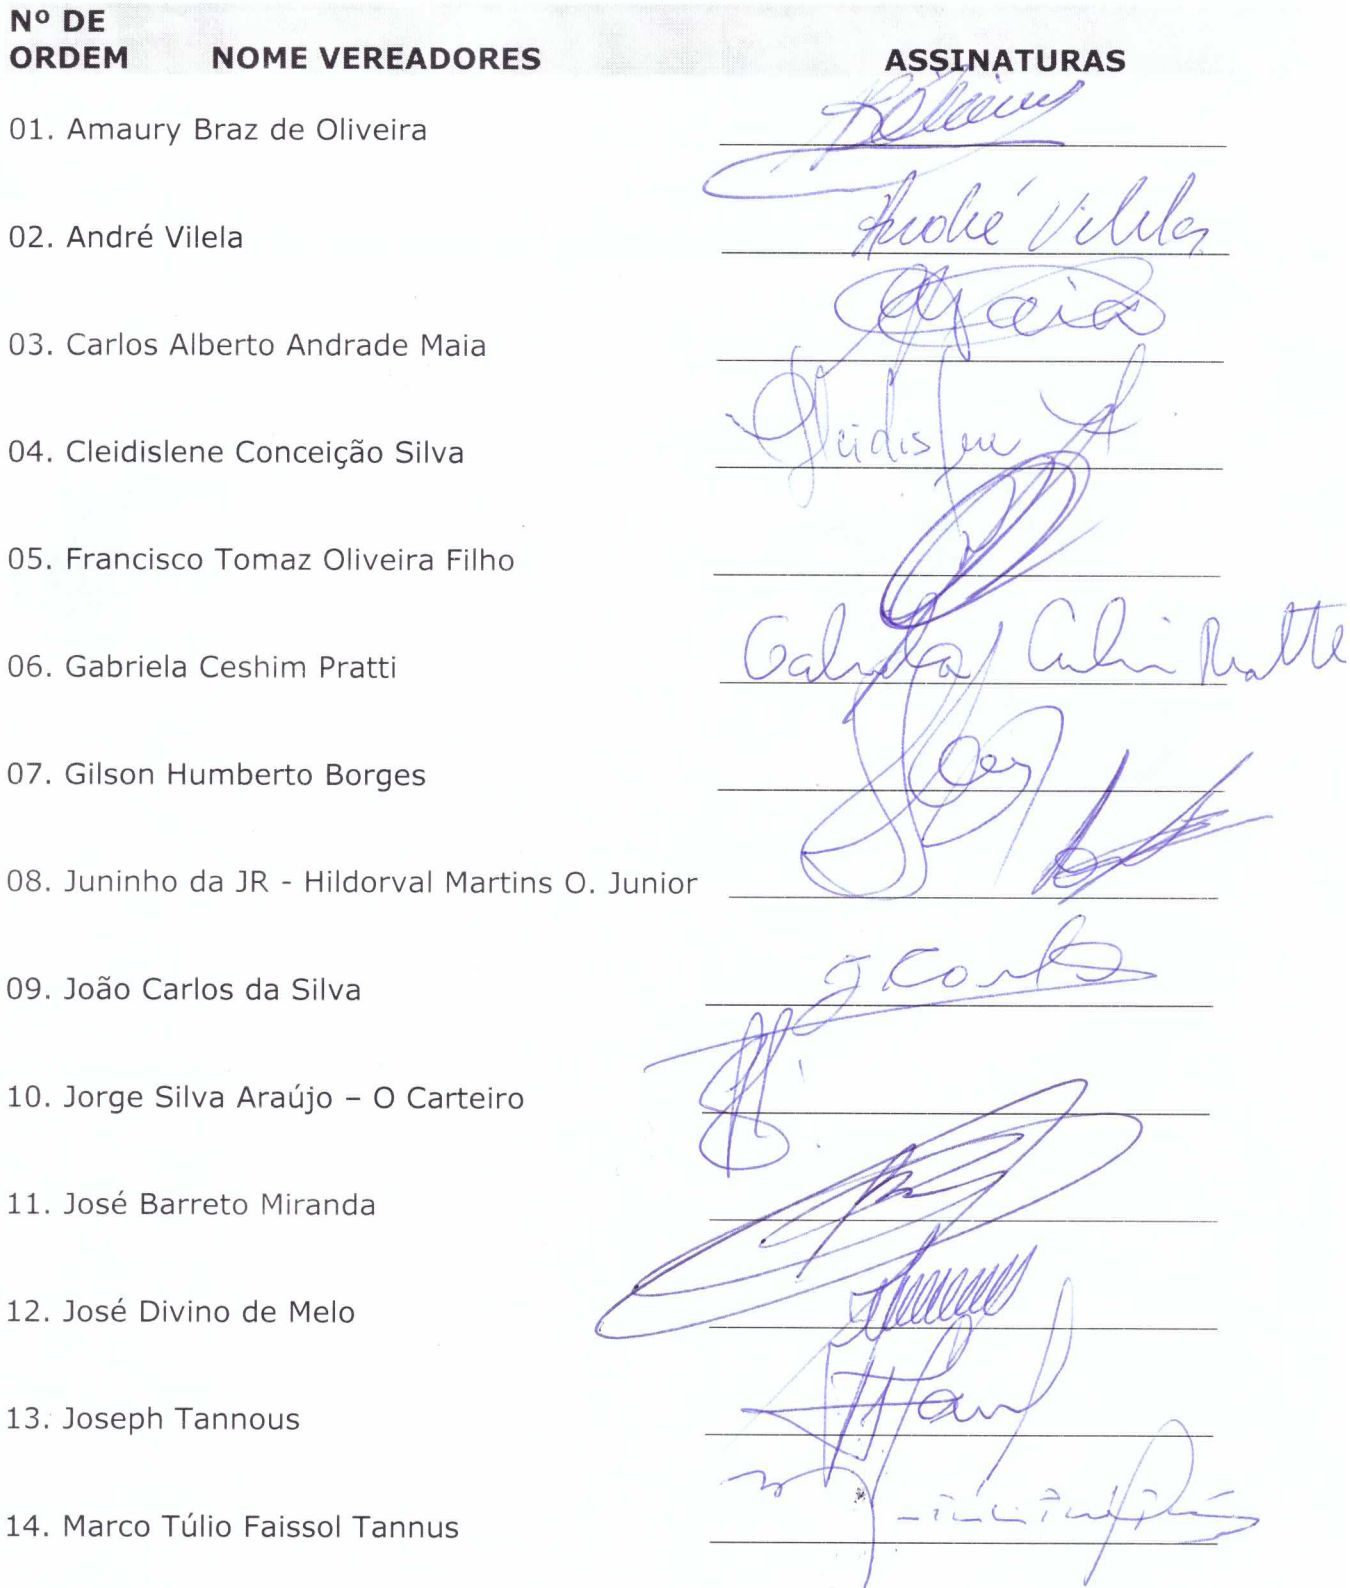 Nº DE
ORDEM NOME VEREADORES ASSINATURAS
01. Amaury Braz de Oliveira
02. André Vilela André Vilela
03. Carlos Alberto Andrade Maia Maia
04. Cleidislene Conceição Silva Cleidislene
05. Francisco Tomaz Oliveira Filho
06. Gabriela Ceshim Pratti Gabriela Ceshim Pratti
07. Gilson Humberto Borges
08. Juninho da JR - Hildorval Martins O. Junior
09. João Carlos da Silva J Carlos
10. Jorge Silva Araújo – O Carteiro
11. José Barreto Miranda
12. José Divino de Melo
13. Joseph Tannous
14. Marco Túlio Faissol Tannus